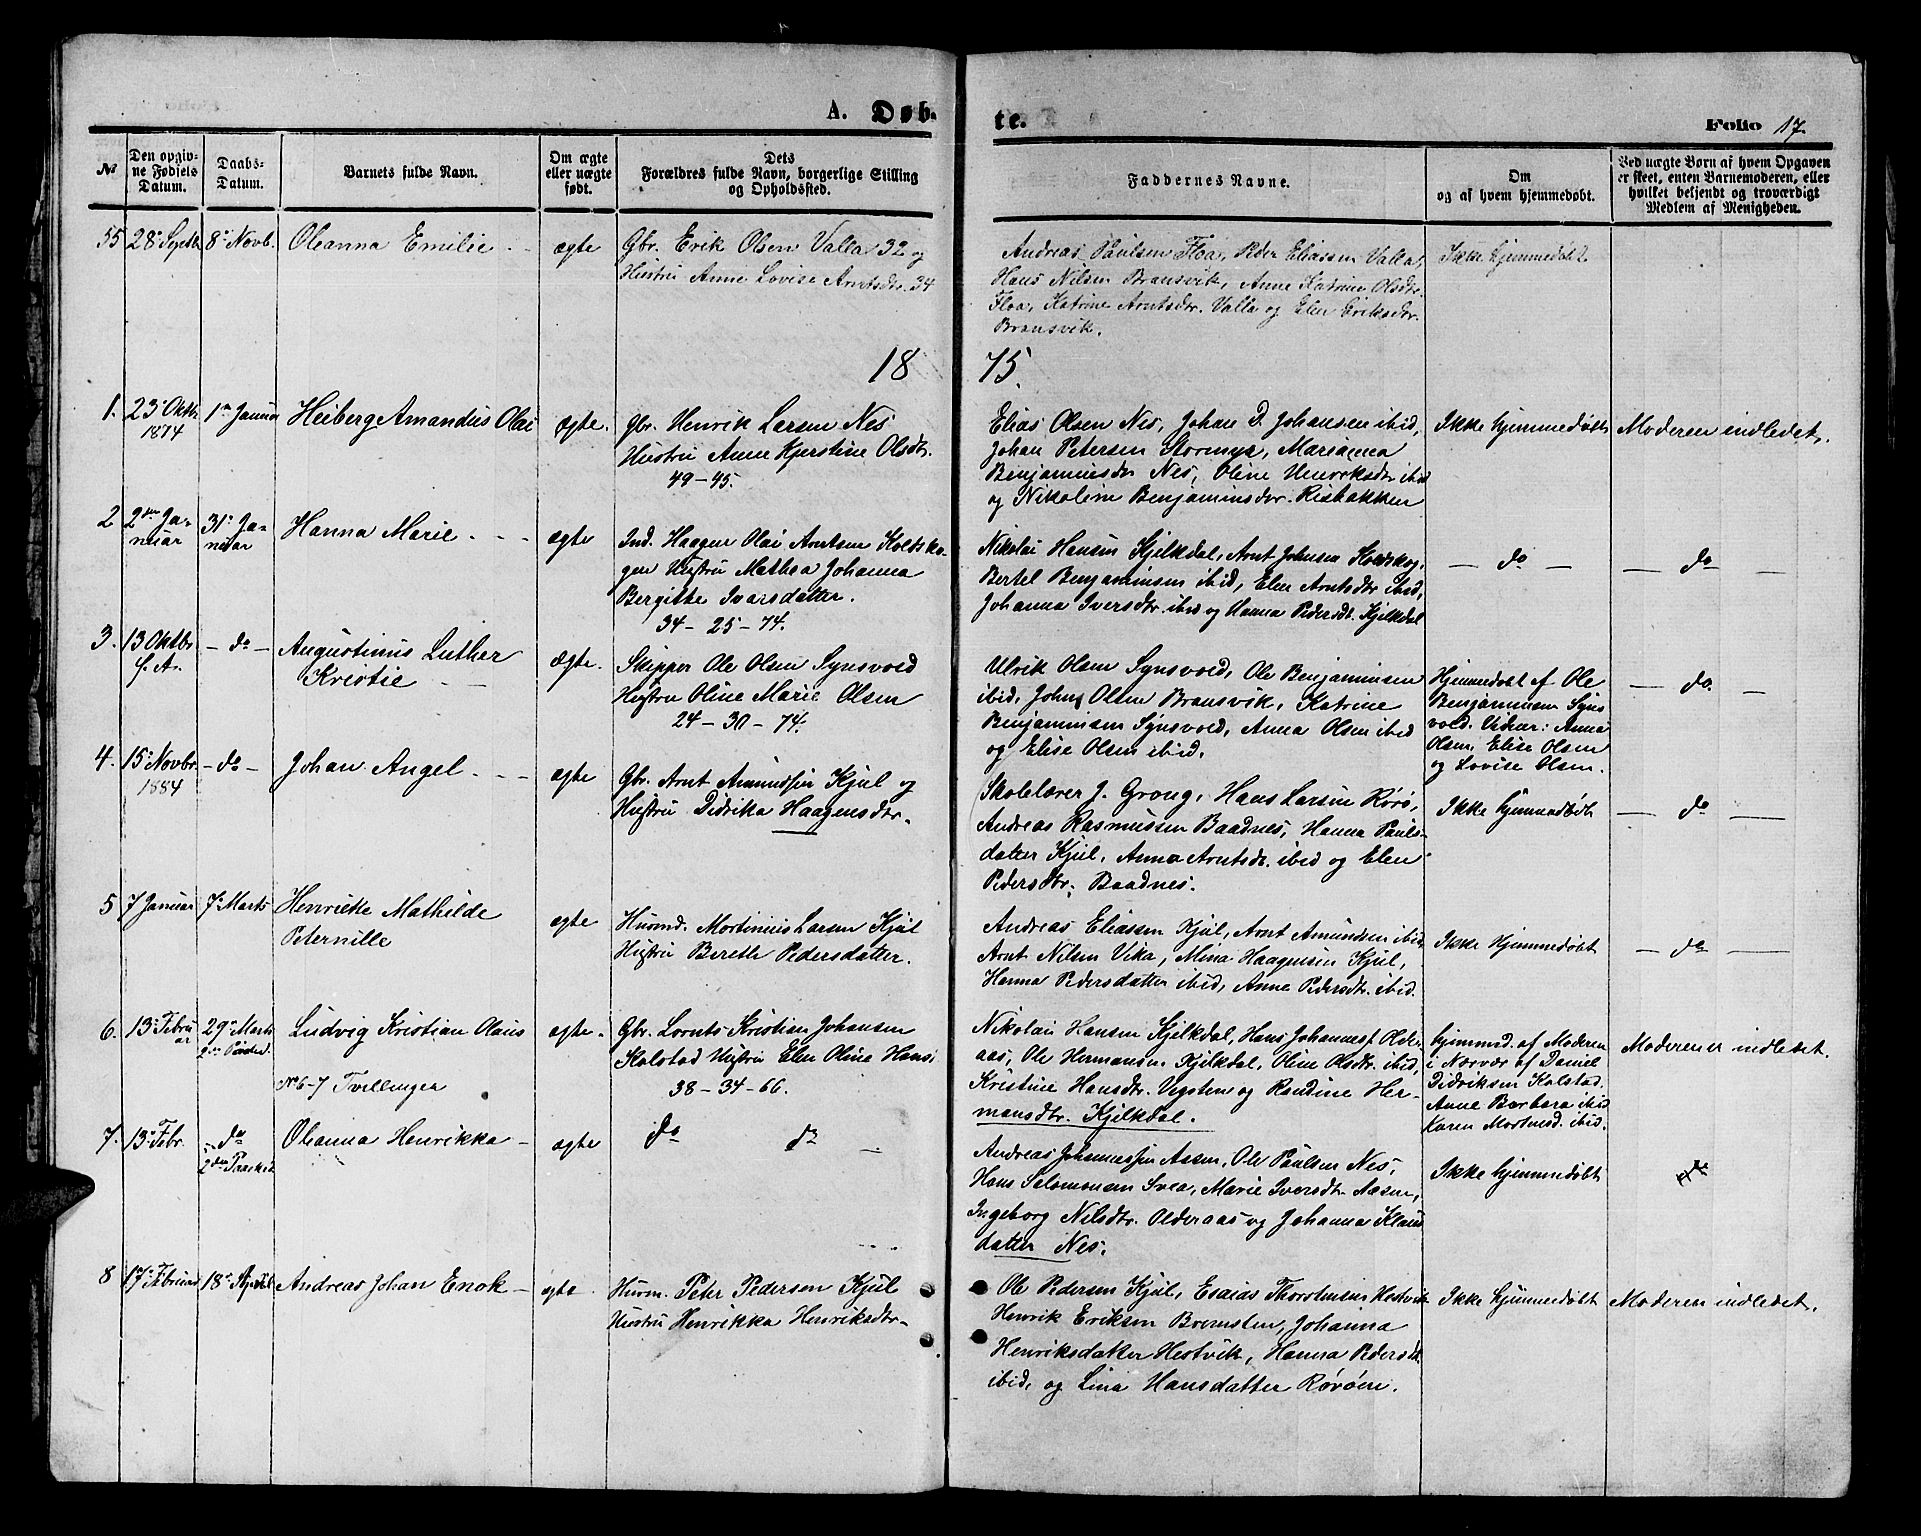 A. Døb-
te.
Folio 17.
№
Den opgiv-
ne Fødsels
Datum.
Daabs-
Datum.
Barnets fulde Navn.
Om ægte
eller uægte
født.
Dets
Forældres fulde Navn, borgerlige Stilling
og Opholdssted.
Faddernes Navne.
Om
og af hvem hjemmedøbt.
Ved uægte Børn af hvem Opgaven
er skeet, enten Barnemoderen, eller
hvilket beljendt og troværdigt
Medlem af Menigheden.
55 28 Septb. 8 Novb. Oleanna Emilie ægte
Gbr. Erik Olsen Valla 32 og
Hustru Anne Lovise Arntsdtr. 34
Andreas Paulsen Floa, Peder Eliassen Valla,
Hans Nilsen Bransvik, Anne Katrine Olsdtr.
Floa, Katrine Arntsdtr. Valla og Elen Eriksdtr.
Bransvik.
Ikke hjemmedøbt
1875.
1. 23 Oktbr. 1874 1ste Januar Heiberg Amandus Olai ægte.
Gbr. Henrik Larsen Nes
Hustru Anne Kjerstine Olsdtr.
49-45.
Elias Olsen Nes, Johan D. Johansen ibid,
Johan Petersen Stormyr, Marianna
Benjaminsdtr Nes, Oline Henriksdtr ibid
og Nikoline Benjaminsdtr. Risbakken
Ikke hjemmedøbt
Moderen indledet.
2 2den Ja-
nuar
31 Ja-
nuar
Hanna Marie ægte
Ind. Haagen Olai Arntsen Koldsko-
gen Hustru Mathea Johanna
Bergitte Ivarsdatter.
34-25-74.
Nikolai Hansen Kjelkdal, Arnt Johnsen Koldskog,
Bertel Benjaminsen ibid, Elen Arntsdtr ibid,
Johanna Iversdtr. ibid og Hanna Pedersdt. Kjelkdal
— do —
— do —
3. 13 Oktbr
f. A.
— do —
Augustinus Luther
Kristie
ægte.
Skipper Ole Olsen Synsvold
Hustru Oline Marie Olsen
24-30-74.
Ulrik Olsen Synsvold, Ole Benjaminsen
ibid, Johns Olsen Bransvik, Katrine
Benjaminsen Synsvold, Anna Olsen ibid
og Elise Olsen ibid.
Hjemmedøbt af Ole
Benjaminsen Syns
vold. Anna
Olsen, Elise Olsen
og Lovise Olsen.
— do. —
4. 15 Novbr. 1884 — do — Johan Angel ægte
Gbr. Arnt Amundsen Kjul og
Hustru Didrika Haagensdtr.
Skolelærer J. Grong, Hans Larsen Rørø,
Andreas Rasmussen Baadnes, Hanna Pauls-
datter Kjul, Anna Arntsdt. ibid og Elen
Pedersdtr. Baadnes.
Ikke hjemmedøbt
— do —
5 7 Januar 7 Marts
Henrikke Mathilde
Peternille
ægte
Husmd. Mortinius Larsen Kjul
Hustru Bereth Pedersdatter.
Andreas Eliassen Kjul, Arnt Amundsen ibid
Arnt Nilsen Vika, Mina Haagensen Kjul,
Hanna Pedersdatter ibid, Anne Pedersdtr. ibid.
Ikke hjemmedøbt
— do —
6. 13 Febru
ar
29 Marts
Ludvig Kristian Olaus
№ 6-7 Tvillinger
ægte.
Gbr. Lornts Kristian Johansen
Kolstad Hustru Elen Oline Hans
38-34-66.
Nikolai Hansen Kjelkdal, Hans Johannesf Older-
aas, Ole Hermansen Kjelkdal, Oline Olsdtr. ibid,
Kristine Hansdtr. Vegsten og Randine Her-
mansdtr. Kjelkdal.
hjemmed. af Moderen
i Norvær af Daniel
Didriksen Kolstad.
Anne Barbara ibid
Karen Mortensd. ibid.
Moderen er indledet.
7. 13 Febr. — do
Oleanna Henrikka ægte
do do
Andreas Johannessen Aasen, Ole Paulsen Nes,
Hans Salomonsen Svea, Marie Iversdtr. Aasen,
Ingeborg Nilsdtr. Olderaas og Johanna Klaus
datter Nes.
Ikke hjemmedøbt
8 17 Februar 18 April Andreas Johan Enok ægte.
Husm. Peter Pedersen Kjul
Hustru Henrikka Henriksdtr.
Ole Pedersen Kjul, Esaias Thorstensen Hestvik
Henrik Eriksen Bremsten, Johanna
Henriksdatter Hestvik, Hanna Pedersdt.
ibid, og Lina Hansdatter Rørøen.
Ikke hjemmedøbt
Moderen indledet.